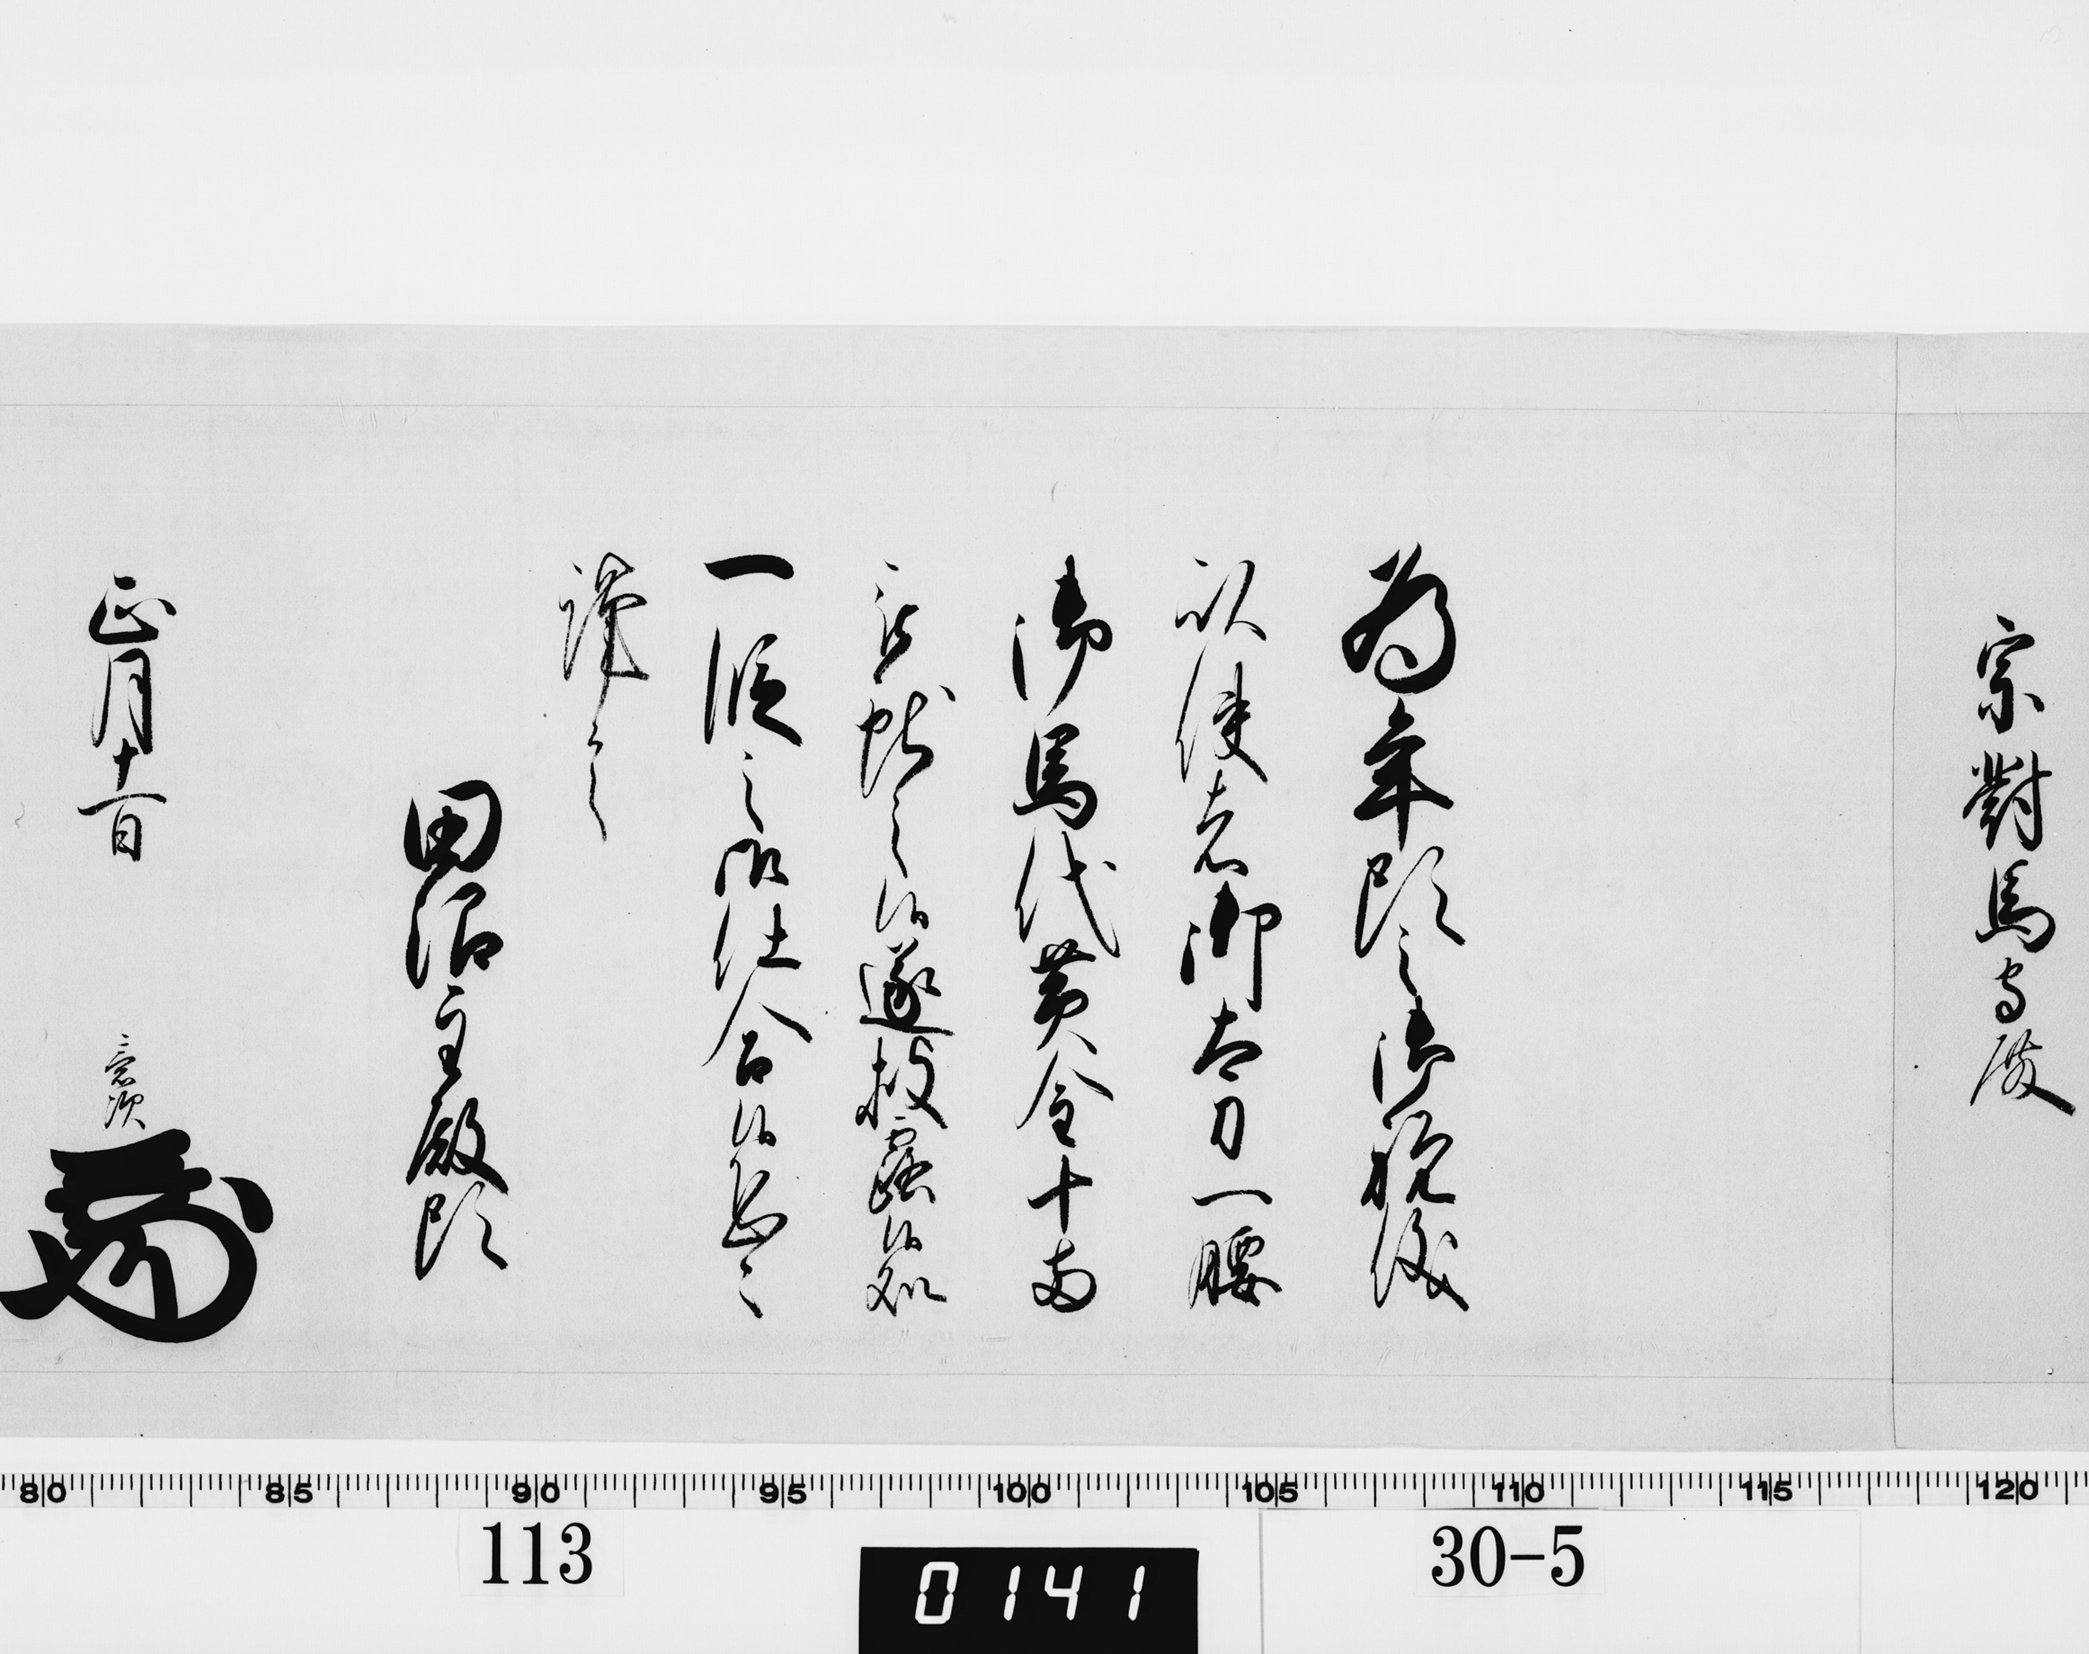 宗對馬守殿
為年頭之御祝儀
以使者御太刀一腰
御馬代黄金十両
被献之候遂披露候処
一段之御仕合候恐々
謹言
田沼主殿頭
正月十一日 意次
80 85 90 95 100 105 110 115 120
113 30-5
0141